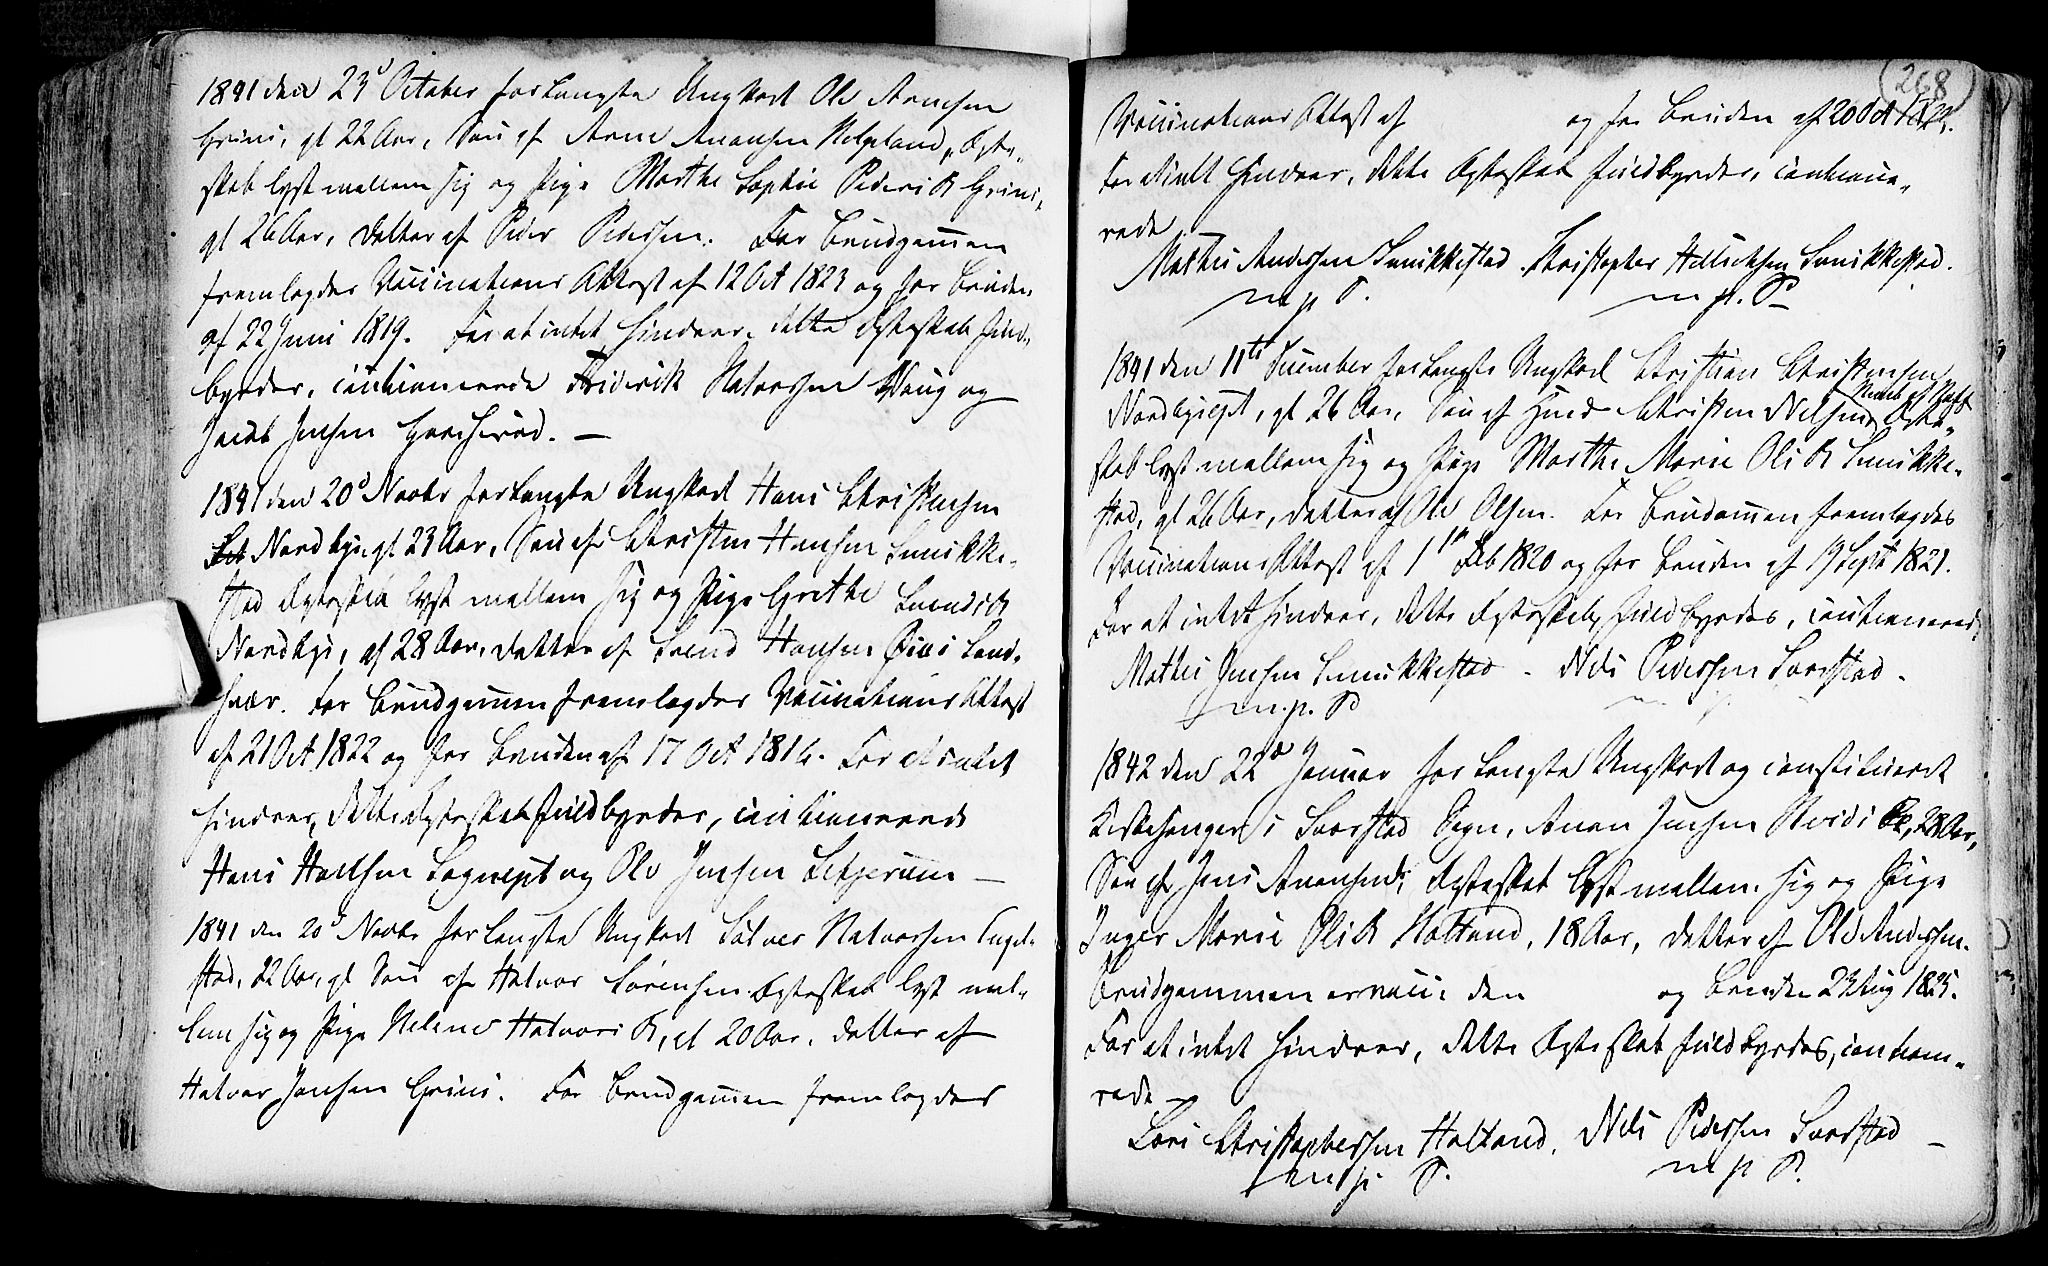 1841 den 23d October forlangte Ungkarl Ole Arnesen
Grini, gl 22 Aar, Søn af Arne Anonsen Helgeland, Ægte-
skab lyst mellem sig og Pige Marthe Sophie Peders D. Grini,
gl 26 Aar, Datter af Peder Pedersen. For Brudgommen
fremlagdes Vaccinations Attest af 12 Oct 1823 og for Bruden
af 22 Juni 1819. For at intet hindrer, dette Ægteskab fuld-
byrdes, cautionerede Friderik Halvorsen Haug og
Jacob Jensen
1841 den 20d Novbr forlangte Ungkarl Hans Christensen
Nordbye, gl 23 Aar, Søn af Christen Hansen Snikke-
stad Ægteskab lyst mellem sig og Pige Grethe Svends D.
Nordbye, af 28 Aar, Datter af Svend Hansen
For Brudgommen fremlagdes Vaccinations Attest
af 21 Oct 1822 og for Bruden af 17 Oct 1816. For at intet
hindrer, dette Ægteskab fuldbyrdes, cautionerede
Hans og Ole Jensen
1841 den 20d Novbr forlangte Ungkarl Halvorsen Engel-
stad, 22 Aar, gl Søn af Halvor Sørensen Ægteskab lyst mel-
lem sig og Pige Helene Halvors D, gl 20 Aar, Datter af
Halvor Jensen Grini. For Brudgommen fremlagdes
268
Vaccinations Attest af og for Bruden af 20 Oct
For at intet hindrer, dette Ægteskab fuldbyrdes, cautione-
rede
Mathis Andersen Snikkestad. Christopher Snikkestad.
m. p. P. m. p. P.
1841 den 11te December forlangte Ungkarl Christian Christensen
Nordbyeejet, gl 26 Aar, Søn af Christen Nielsen, Ægte-
skab lyst mellem sig og Pige Marthe Marie Ols D. Snikke-
stad, gl 26 Aar, Datter af Ole Olsen. For Brudgommen fremlagdes
Vaccinations Attest af 1te Feb 1820 og for Bruden af 19 Sept 1821.
For at intet hindrer, dette Ægteskab fuldbyrdes, cautionerede
Mathis Jensen Snikkestad - Nils Pedersen Saastad -
m. p. P.
1842 den 22d Januar forlangte Ungkarl og constitueret
Kirkesanger i Saastad Sogn, Anon Jensen 28 Aar,
Søn af Jens Anonsen, Ægteskab lyst mellem sig og Pige
Inger Marie Ols D. Holtand, 18 Aar, Datter af Ole Andersen.
Brudgommen er vacc. den og Bruden 23 Aug 1825.
For at intet hindrer, dette Ægteskab fuldbyrdes, cautione-
rede
Lars Christophersen Holtand. Nils Pedersen Saastad -
m. p. P. m. p. P.